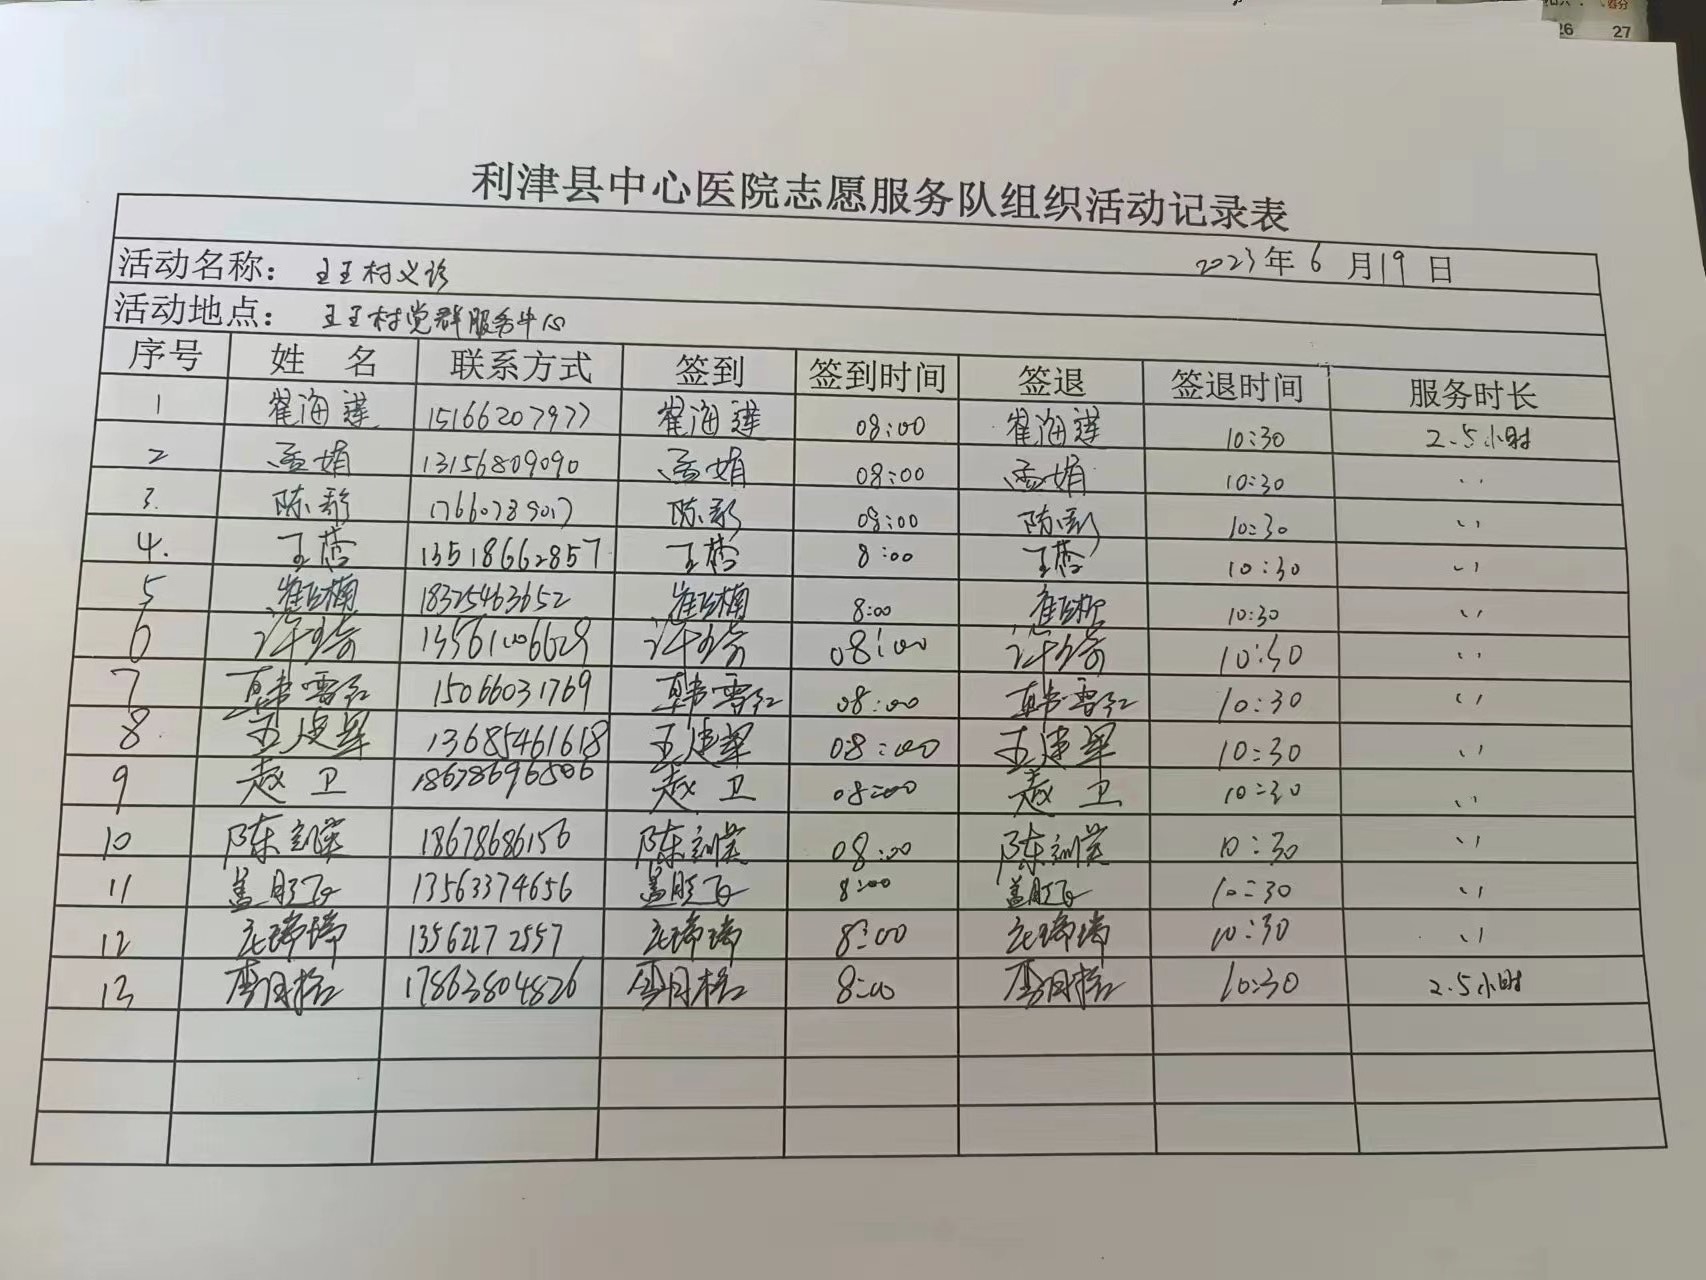 26 27
利津县中心医院志愿服务队组织活动记录表
2023年6月19日
活动名称： 王王村义诊
活动地点： 王王村党群服务中心
序号 姓 名 联系方式 签到 签到时间 签退 签退时间 服务时长
1 翟海莲 15166207977 翟海莲 08:00 翟海莲 10:30 2.5小时
2 孟娟 13156809090 孟娟 08:00 孟娟 10:30 〃
3. 陈彩 17660789017 陈彩 08:00 陈彩 10:30 〃
4. 王蓓 13518662857 王蓓 8:00 王蓓 10:30 〃
5 18325463652 8:00 10:30 〃
6 13561006629 08:00 10:30 〃
7 韩雪红 15066031769 韩雪红 08:00 韩雪红 10:30 〃
8 王建军 13685461618 王建军 08:00 王建军 10:30 〃
9 赵卫 18678696506 赵卫 08:00 赵卫 10:30 〃
10 18678686156 08:00 10:30 〃
11 13563374656 8:00 10:30 〃
12 13562172557 8:00 10:30 〃
13 17863804826 8:00 10:30 2.5小时